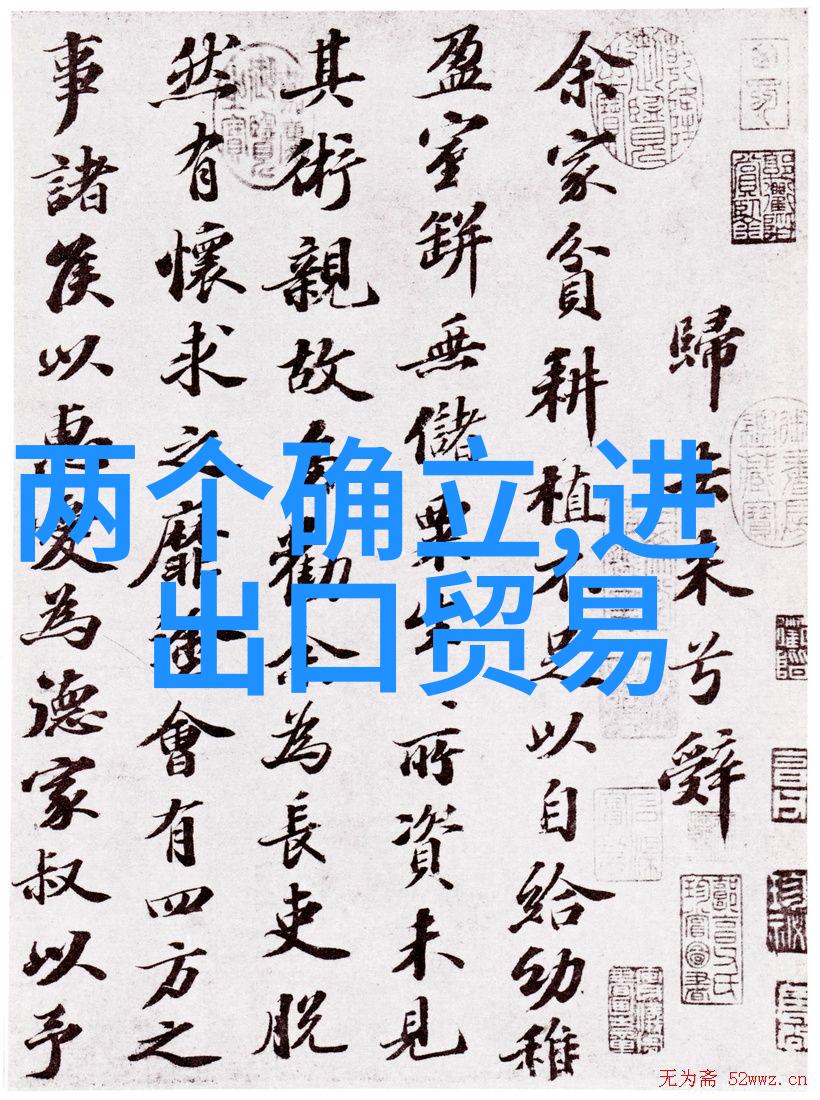 歸去来兮辭
余家貧耕植不足以自給幼稚
盈室缾無儲粟生、所資未見
其術親故多勸余為長吏脱
然有懷求之靡途會有四方之
事諸侯以惠愛為德家叔以予
两个确立,进
出口贸易
无为斋 52wwz.cn